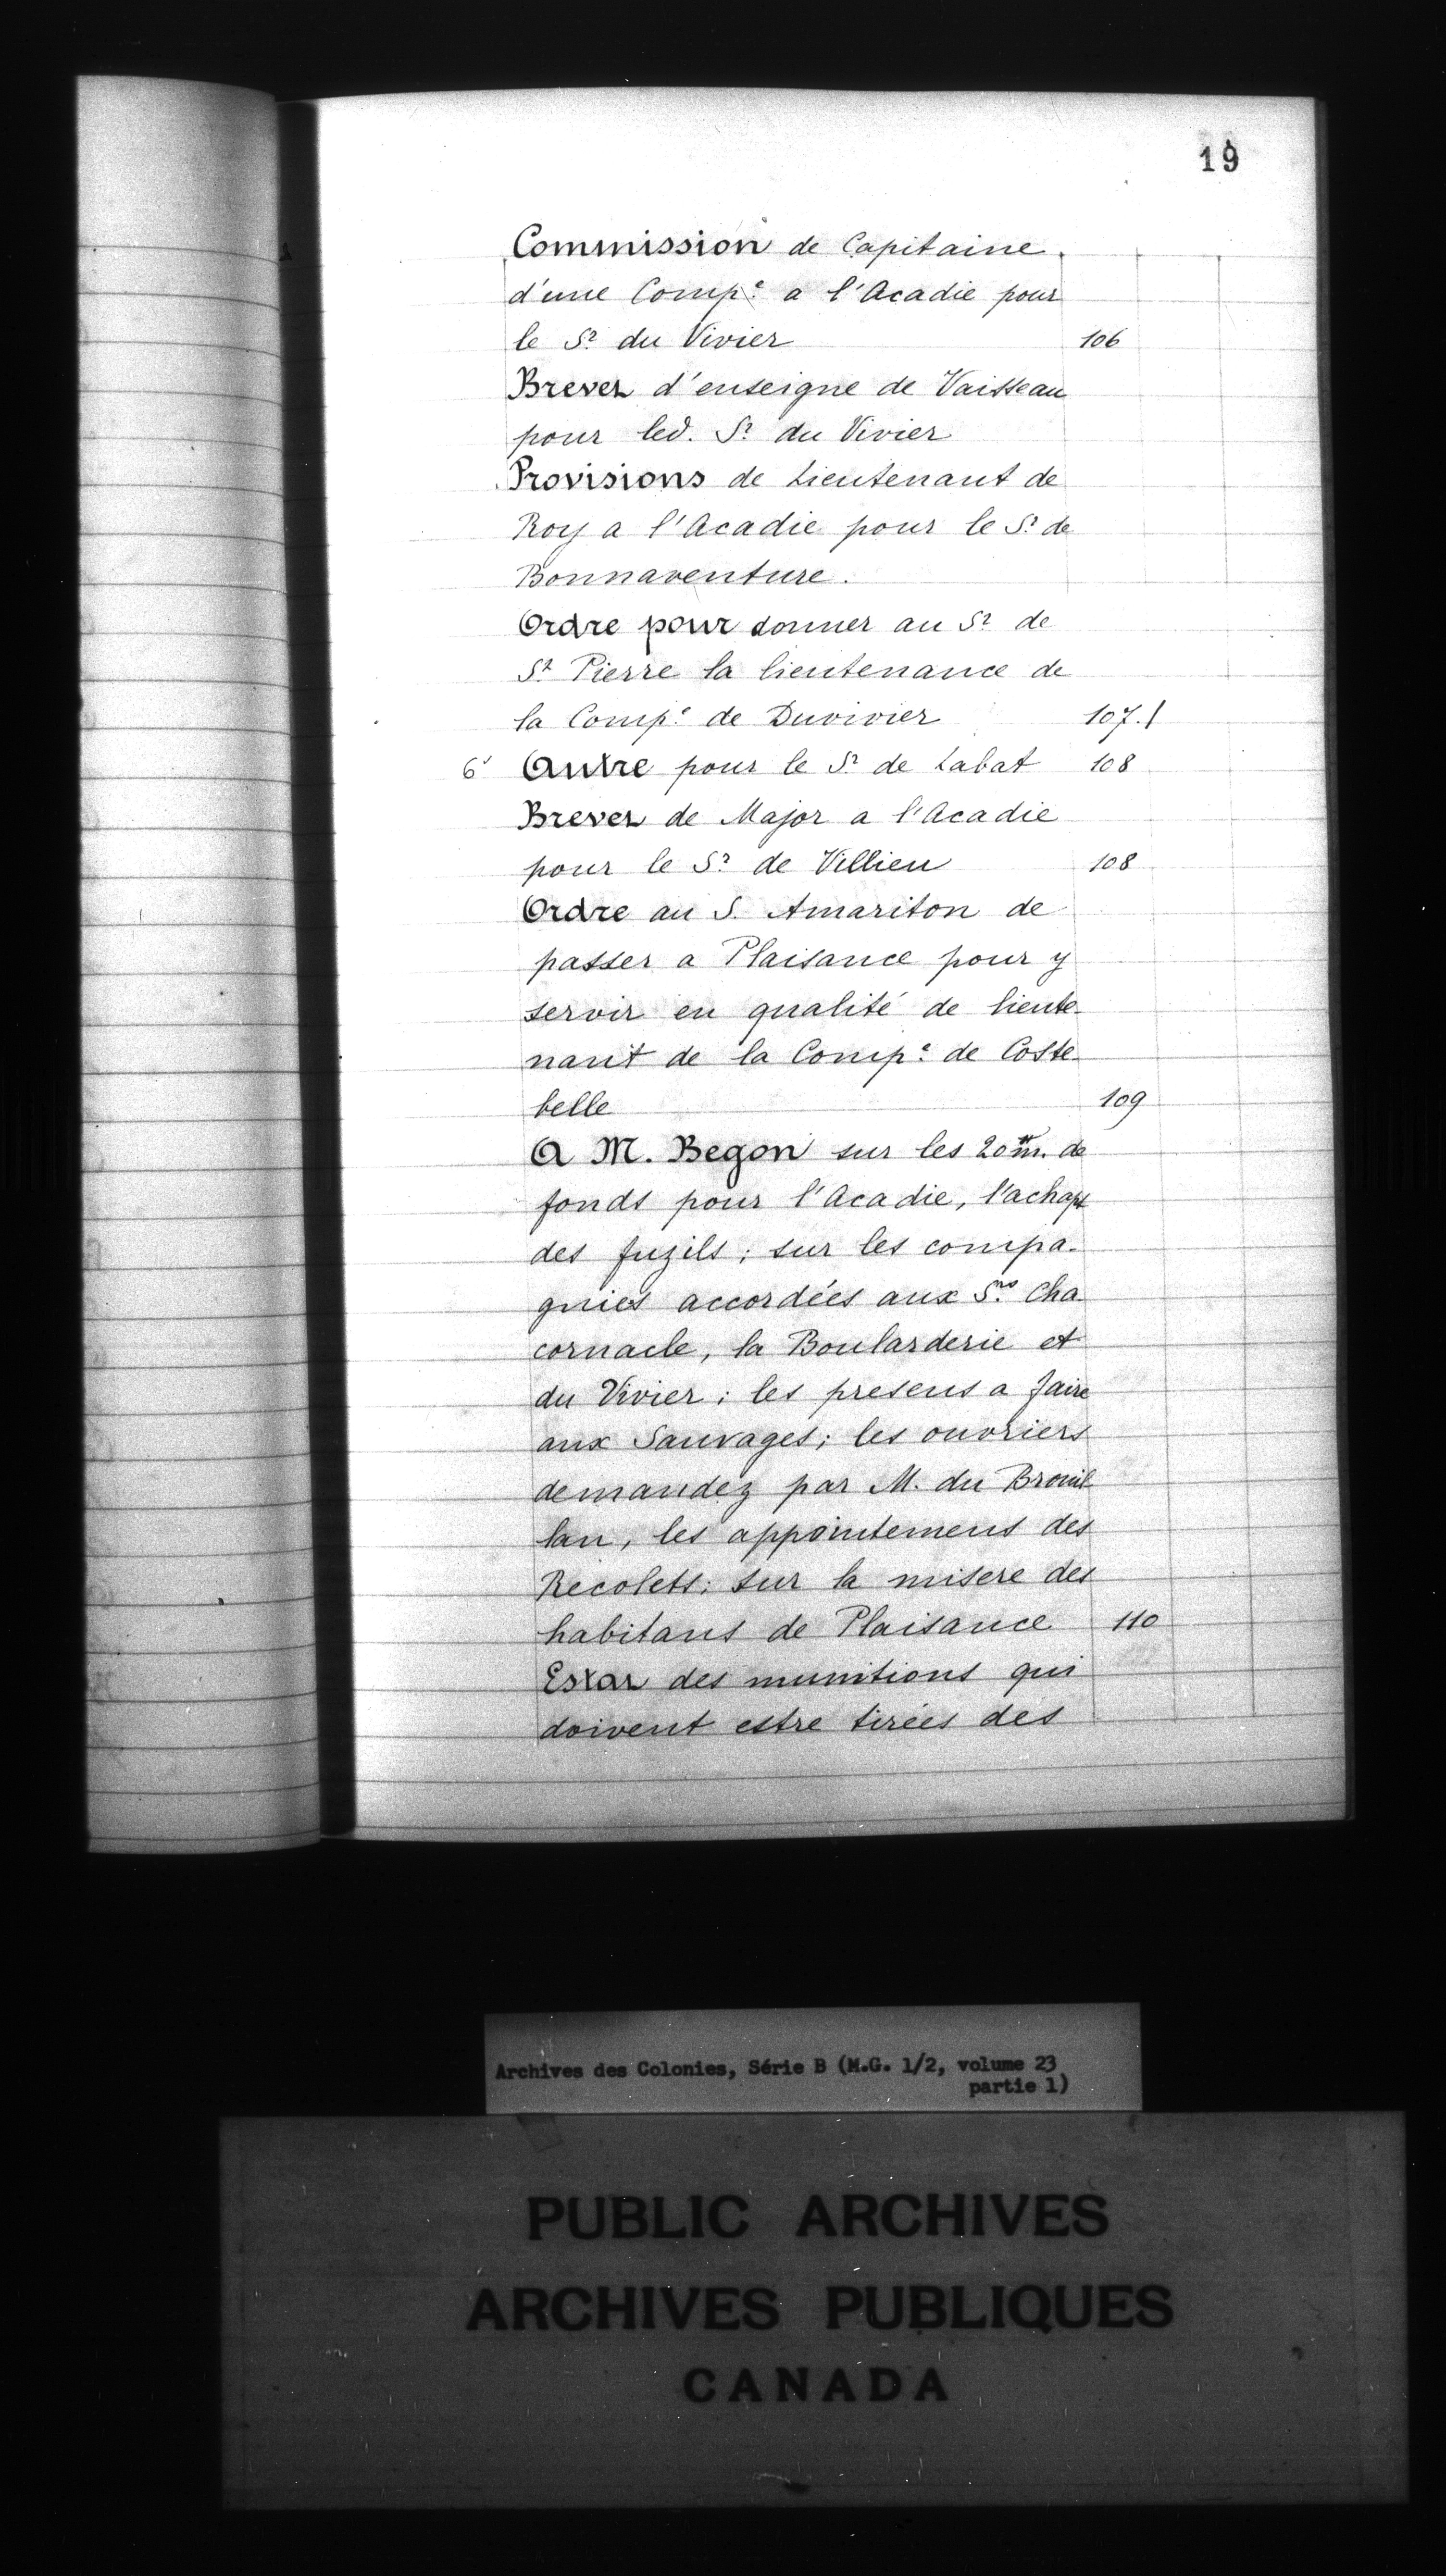 19
Commission de Capitaine
d'une Comp.e a l'Acadie pour
le Sr. du Vivier 106
Brevet d'enseigne de Vaisseau
pour led. Sr. du Vivier
Provisions de Lieutenant de
Roy a l'Acadie pour le Sr. de
Bonnaventure.
Ordre pour donner au Sr. de
St. Pierre la lieutenance de
la Comp.e de Duvivier 107./
6 Autre pour le Sr. de Labat 108
Brevet de Major a l'Acadie
pour le Sr. de Villieu 108
Ordre au S. Amariton de
passer a Plaisance pour y
servir en qualité de lieute-
nant de la Comp.e de Coste-
belle 109
A M. Begon sur les 20 m. de
fonds pour l'Acadie, l'achapt
des fuzils; sur les compa-
gnies accordées aux Srs. Cha
cornacle, la Boularderie et
du Vivier; les presens a faire
aux Sauvages; les ouvriers
demandez par M. du Brouil-
lan, les appointemens des
Recolets; sur la misere des
habitans de Plaisance 110
Estat des munitions qui
doivent estre tirées des
Archives des Colonies, Série B (M.G. 1/2, volume 23
partie 1)
PUBLIC ARCHIVES
ARCHIVES PUBLIQUES
CANADA